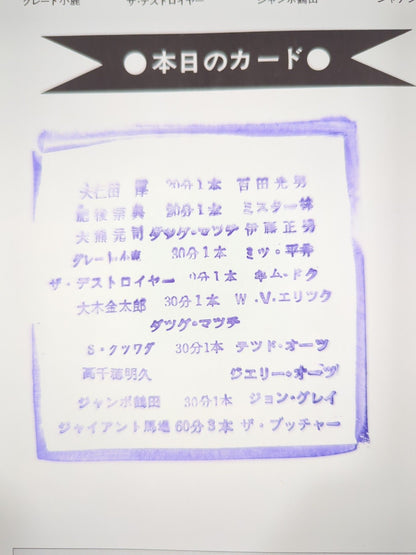 グレート小鹿 ザ・デストロイヤー ジャンボ鶴田
●本日のカード●
大仁田 厚 20分1本 百田光男
肥後宗典 30分1本 ミスター林
大熊元司 タッグ・マツチ 伊藤正男
グレート小鹿 30分1本 ミツ・平井
ザ・デストロイヤー 0分1本 キム・ドク
大木金太郎 30分1本 W.V.エリツク
タツグ・マツチ
S・クツワダ 30分1本 テツド・オーツ
高千穂明久 ジエリー・オーツ
ジャンボ鶴田 30分1本 ジョン・グレイ
ジャイアント馬場 60分3本 ザ・ブッチャー